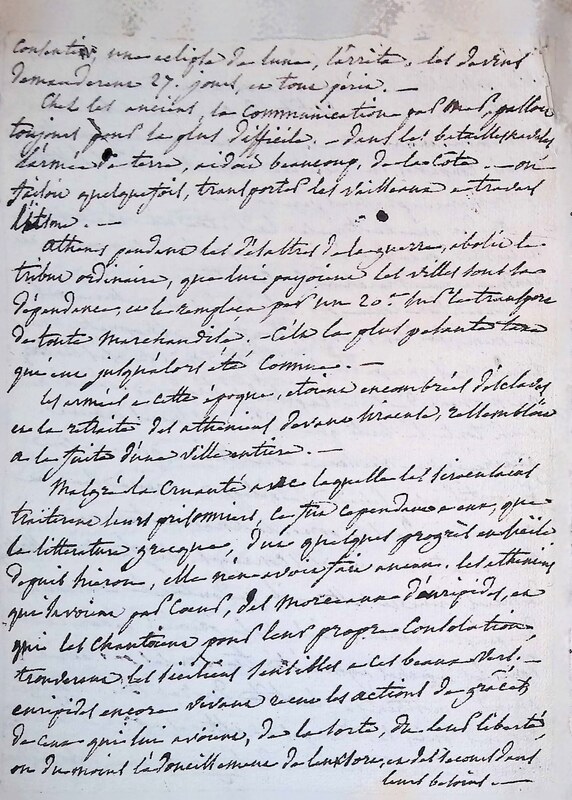 consentir, une eclipse de lune, l'arrêta. les devins
demanderent 27. jours, et tout périt. —
Chez les anciens, la communication par mer, passoit
toujours pour la plus difficile. — dans les batailles navales
l'armée de terre, aidoit beaucoup, de la côte. — on
faisoit quelquefois, transporter les vaisseaux a travers
l'istme. —
athenes pendant les désastres de la guerre, abolit le
tribut ordinaire, que lui payoient les villes sous sa
dépendance, et le remplaça par un 20e. sur le transport
de toute marchandise. — c'est la plus pesante taxe
qui eut jusqu'alors été connue. —
les armées a cette époque, etoient encombrées d'esclaves
et la retraite des athéniens devant siracuse, ressembloit
a la fuite d'une ville entière. —
Malgré la cruauté avec laquelle les siracusains
traiterent leurs prisonniers, ce fut cependant a eux, que
la litterature grecque, dut quelques progrès en sicile
depuis hieron, elle n'en avoit fait aucun. les athéniens
qui savoient par coeur, des morceaux d'euripides, et
qui les chantoient pour leur propre consolation,
trouverent les siciliens sensibles a ces beaux vers. —
euripides encore vivant recut les actions de grâces
de ceux qui lui avoient, de la sorte, du leur liberté,
ou du moins l'adoucissement de leur sort, et des secours dans
leurs besoins. —